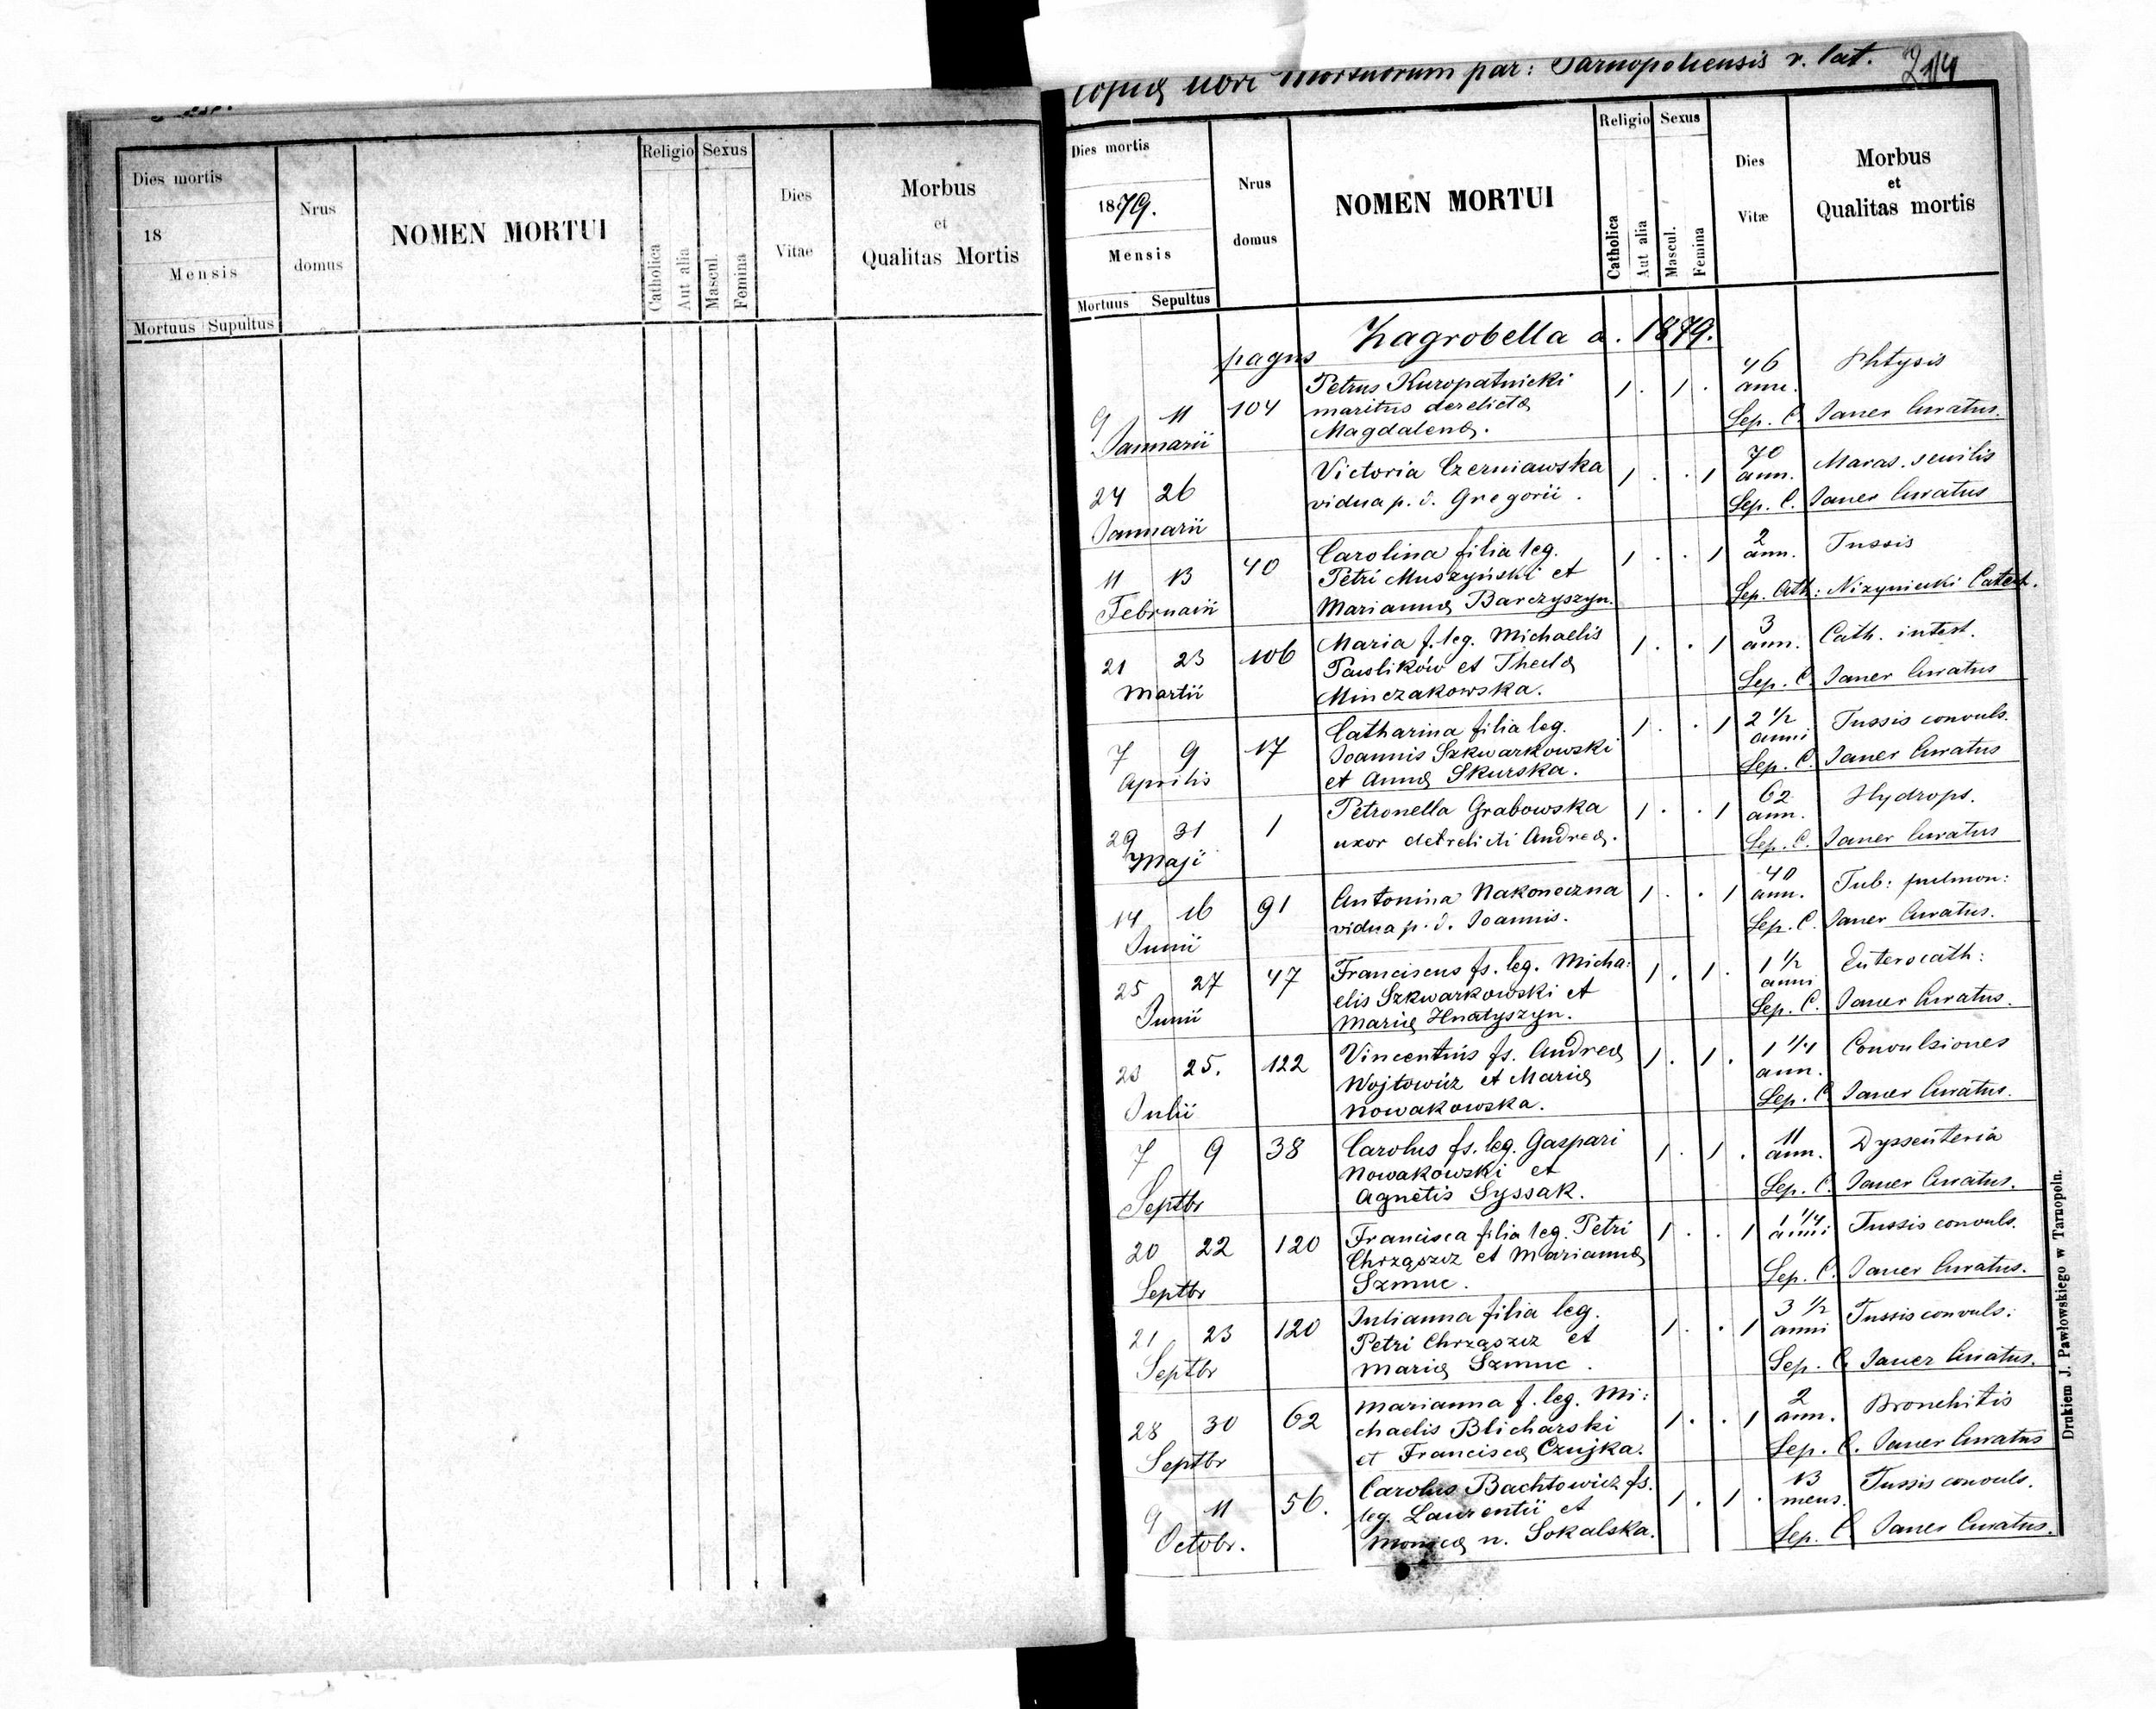 Dies mortis
18
Mensis
Mortuus Supultus
Nrus
domus
NOMEN MORTUI
Religio Sexus
Catholica
Aut alia
Mascul.
Femina
Dies
Vitae
Morbus
et
Qualitas Mortis
Copia libri Mortuorum par: Tarnopoliensis r. lat.
Dies mortis
1879.
Mensis
Mortuus Sepultus
Nrus
domus
NOMEN MORTUI
Religio Sexus
Catholica
Aut alia
Mascul.
Femina
Dies
Vitæ
Morbus
et
Qualitas mortis
pagus Zagrobella a. 1879.
9 11 104 Petrus Kuropatnicki 1 . 1 . 46 Phtysis
Januarii maritus derelictæ ann.
Magdalenæ. Sep. C. Janer Curatus.
24 26 Victoria Czerniawska 1 . . 1 70 Maras. senilis
Januarii vidua p. d. Gregorii. ann.
Sep. C. Janer Curatus
11 13 40 Carolina filia leg. 1 . . 1 2 Tussis
Februarii Petri Muszyński et ann.
Mariannæ Barczyszyn. Sep. Cath: Nizyniecki Catech.
21 23 106 Maria f. leg. Michaelis 1 . . 1 3 Cath. intest.
Martii Pawlików et Theclæ ann.
Minczakowska. Sep. C. Janer Curatus
7 9 17 Catharina filia leg. 1 . . 1 2 1/2 Tussis convuls.
Aprilis Joannis Szkwarkowski anni
et Annæ Skurska. Sep. C. Janer Curatus
29 31 1 Petronella Grabowska 1 . . 1 62 Hydrops.
Maji uxor detrelicti Andreæ. ann.
Sep. C. Janer Curatus
14 16 91 Antonina Nakoneczna 1 . . 1 40 Tub: pulmon:
Junii vidua p. d. Joannis. ann.
Sep. C. Janer Curatus.
25 27 47 Franciscus fs. leg. Micha: 1 . 1 . 1 1/2 Enterocath:
Junii elis Szkwarkowski et anni
Mariæ Hnatyszyn. Sep. C. Janer Curatus.
23 25. 122 Vincentius fs. Andreæ 1 . 1 . 1 1/4 Convulsiones
Julii Wojtowicz et Mariæ ann.
Nowakowska. Sep. C. Janer Curatus.
7 9 38 Carolus fs. leg. Gaspari 1 . 1 . 11 Dyssenteria
Septbr Nowakowski et ann.
Agnetis Syssak. Sep. C. Janer Curatus.
20 22 120 Francisca filia leg. Petri 1 . . 1 1 1/4 Tussis convuls.
Septbr Chrząszcz et Mariannæ anni
Szmuc. Sep. C. Janer Curatus.
21 23 120 Julianna filia leg. 1 . . 1 3 1/2 Tussis convuls:
Septbr Petri Chrząszcz et anni
Mariæ Szmuc. Sep. C. Janer Curatus.
28 30 62 Marianna f. leg. Mi: 1 . . 1 2 Bronchitis
Septbr chaelis Blicharski ann.
et Franciscæ Czujka. Sep. C. Janer Curatus
9 11 56. Carolus Bachtowicz fs. 1 . 1 . 13 Tussis convuls.
Octobr. leg. Laurentii et mens.
Monicæ n. Sokalska. Sep. C. Janer Curatus.
Drukiem J. Pawłowskiego w Tarnopoln.